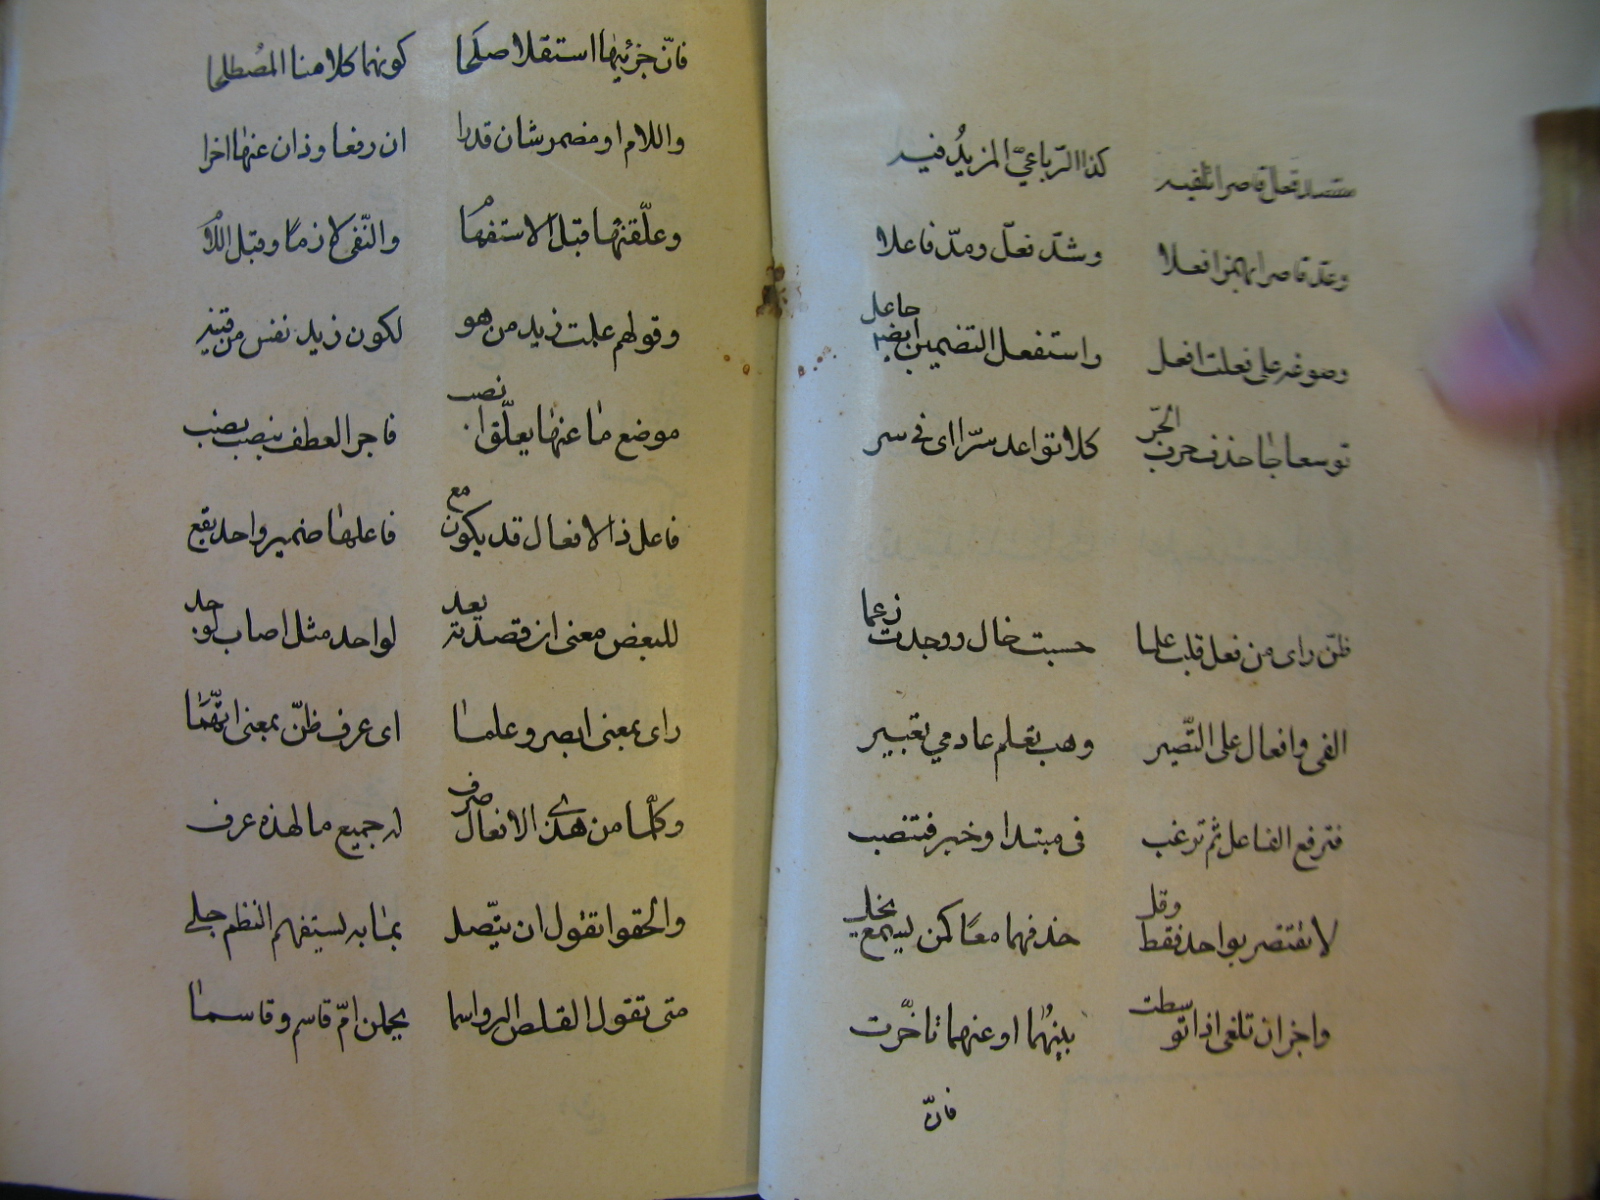 كذا الرّباعيّ المزيدُ فيه
وعدّ قاصرا بهمز افعلا وشدّ فعلّ ومدّ فاعلا
وصوغه على فعلت افعل واستفعل التضمين ايضا جاعل
توسعا جاحذف حرف الجّر كلا تواعد سرّا اى فى سر
ظنّ راى من فعل قلب علما حسبت خال ووجدت زعما
الفى وافعال على التّصيير وهب تعلم عاد مي تعبير
فترفع الفاعل ثم ترغب فى مبتدا وخبر فتنصب
لا تقتصر بواحد فقط وقل حذفهما معًا كمن يسمع يخل
واجز ان تلغى اذا توسطت بينهُما او عنهما تاخّرت
فانّ
فانّ جزئيها استقلا صلحا كونهما كلامنا المصُطلحا
واللام او مضمر شان قدرا ان رفعا وذان عنها اخرا
وعلّقنها قبل الاستفهام والنّفى لازما وقبل اللام
وقولهم علمت زيد من هو لكون زيد نفس من قبنيه
موضع ما عنها يعلّق انصب فاجر العطف بنصب يصب
فاعل ذا الافعال قد يكون مع فاعلها ضمير واحد يقع
للبعض معنى ان قصدته يعد لواحد مثل اصاب لوجد
راى بمعنى ابصر وعلما اى عرف ظنّ بمعنى اتّهما
وكلّما من هذى الافعال صرف له جميع ما لهذه عرف
والحقوا تقول ان يتّصل بمابه يستفهم النظم جلى
متى تقول القلص الرواسما يحملن امّ قاسم وقاسما